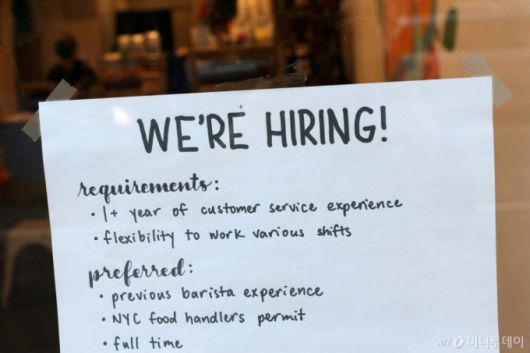 WE'RE HIRING!
requirements:
• 1+ year of customer service experience
• flexibility to work various shifts
preferred:
• previous barista experience
• NYC food handlers permit
• full time
머니투데이